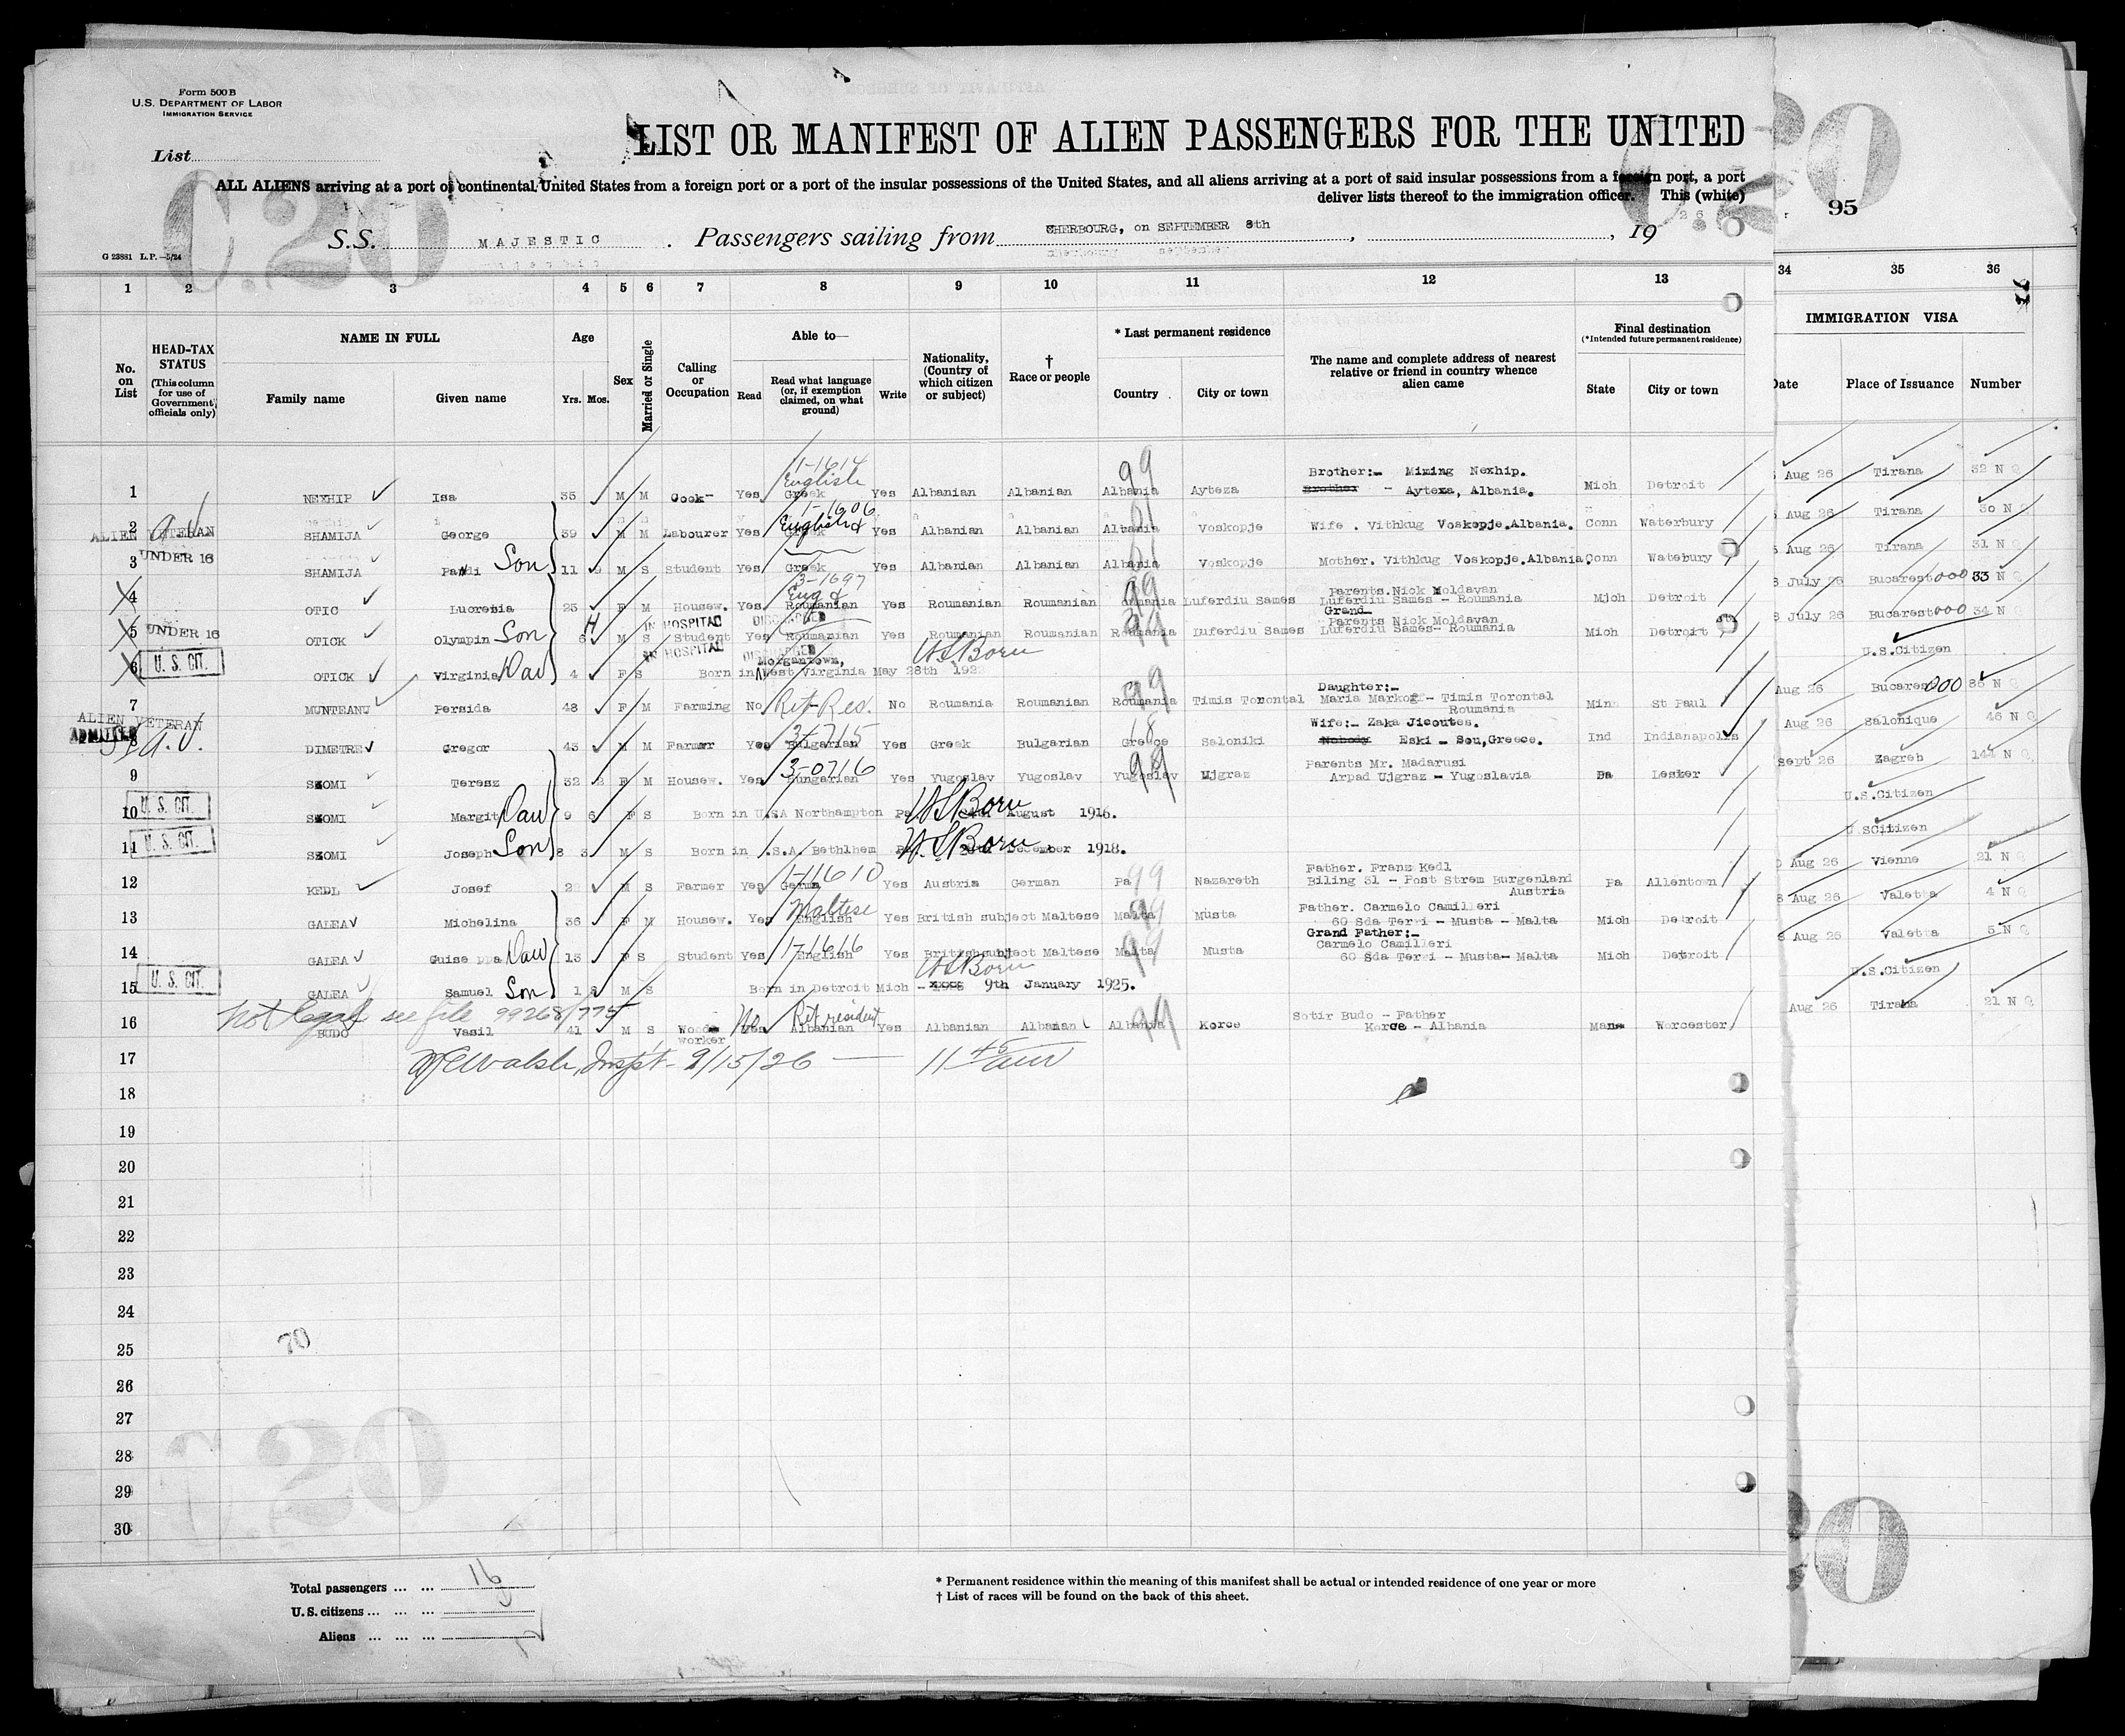 Form 500 B
U.S. DEPARTMENT OF LABOR
IMMIGRATION SERVICE
List
LIST OR MANIFEST OF ALIEN PASSENGERS FOR THE UNITED
ALL ALIENS arriving at a port of continental United States from a foreign port or a port of the insular possessions of the United States, and all aliens arriving at a port of said insular possessions from a foreign port, a port
deliver lists thereof to the immigration officer. This (white)
C.20
95
S.S. MAJESTIC . Passengers sailing from CHERBOURG, on SEPTEMBER 8th , , 19 26
G 23881 L.P.—5/24
1 2 3 4 5 6 7 8 9 10 11 12 13 34 35 36
No. on List
HEAD-TAX STATUS (This column for use of Government officials only)
NAME IN FULL
Family name Given name
Age
Yrs. Mos.
Sex
Married or Single
Calling or Occupation
Able to—
Read
Read what language (or, if exemption claimed, on what ground)
Write
Nationality, (Country of which citizen or subject)
† Race or people
* Last permanent residence
Country City or town
The name and complete address of nearest relative or friend in country whence alien came
Final destination
(*Intended future permanent residence)
State City or town
IMMIGRATION VISA
Date Place of Issuance Number
1-1614
English
Brother:- Miming Nexhip.
1 NEXHIP Isa 35 M M Cook Yes Greek Yes Albanian Albanian Albania 99 Ayteza Brother - Ayteza, Albania. Mich Detroit Aug 26 Tirana 32 N Q
1-1606
ALIEN VETERAN
2 SHAMIJA George 39 M M Labourer Yes English & Greek Yes Albanian Albanian Albania Voskopje Wife . Vithkug Voskopje.Albania. Conn Waterbury Aug 26 Tirana 30 N Q
UNDER 16
3 SHAMIJA Pandi Son 11 M S Student Yes Greek Yes Albanian Albanian Albania Voskopje Mother. Vithkug Voskopje.Albania. Conn Watebury Aug 26 Tirana 31 N Q
3-1697
Eng &
Parents.Nick Moldavan
4 OTIC Lucresia 23 F M Housew. Yes Roumanian Yes Roumanian Roumanian 99 Luferdiu Sames Luferdiu Sames - Roumania Mich Detroit 8 July 26 Bucarest 000 33 N Q
IN HOSPITAL DISCHARGED
Grand
Parents Nick Moldavan
5 UNDER 16 OTICK Olympin Son 6 M S Student Yes Roumanian Yes Roumanian Roumanian Roumania Luferdiu Sames Luferdiu Sames- Roumania Mich Detroit 8 July 26 Bucarest 000 34 N Q
IN HOSPITAL DISCHARGED
Morgantown,
US Born
6 U. S. CIT. OTICK Virginia Dau 4 F S Born in West Virginia May 28th 192 U.S.Citizen
Daughter:-
7 MUNTEANU Persida 48 F M Farming No Ret-Res. No Roumania Roumanian Roumania 99 Timis Torontal Maria Markoff - Timis Torontal Minn St Paul Aug 26 Bucarest 000 85 N Q
Roumania
ALIEN VETERAN
ADMITTED
3-715
Wife:- Zaka Jicoutes.
8 DIMETRE Gregor 43 M M Farmer Yes Bulgarian Yes Greek Bulgarian Greece Saloniki Nobody Eski - Sou,Greece. Ind Indianapolis Aug 26 Salonique 46 N Q
3-0716
Parents Mr. Madarusi
9 Teresz 32 F M Housew. Yes Hungarian Yes Yugoslav Yugoslav Yugoslav 99 Ujgraz Arpad Ujgraz - Yugoslavia Pa Lesker Sept 26 Zagreb 144 N Q
10 U. S. CIT. Margit Dau 9 6 F S Born in U.S.A Northampton Pa US Born August 1916. U.S.Citizen
11 U. S. CIT. Joseph Son 8 3 M S Born in .S.A. Bethlhem US Born December 1918. U SCitizen
1-11610
Father. Franz Kedl
12 KEDL Josef 22 M S Farmer Yes Germa Yes Austria German Pa 99 Nazareth Biling 31 - Post Strem Burgenland Pa Allentown Aug 26 Vienne 21 N Q
Austria
Maltese
Father. Carmelo Camilleri
13 GALEA Michelina 36 F M Housew. Yes English Yes British subject Maltese Malta 99 Musta 60 Sda Terri - Musta - Malta Mich Detroit 8 Aug 26 Valetta 4 N Q
Grand Father:-
Carmelo Camilleri
14 GALEA Guise ppa Dau 13 F S Student Yes English Yes British subject Maltese Malta 99 Musta 60 Sda Terri - Musta- Malta Mich Detroit 8 Aug 26 Valetta 5 N Q
US Born
15 U. S. CIT. GALEA Samuel Son 1 8 M S Born in Detroit Mich - 9th January 1925. U.S.Citizen
Not legal see file 99268/775
Ret resident
Sotir Budo - Father
16 BUDO Vasil 41 M S Wood worker No Yes Albanian Yes Albanian Albanian Albania 99 Korce Korce - Albania Mass Worcester Aug 26 Tirana 21 N Q
17 Walsh, Inspt- 9/15/26 — 11 45 am
18
19
20
21
22
23
24
25
26
27
28
29
30
70
C.20
Total passengers ... ... 16
U. S. citizens ... ... ...
Aliens ... ... ...
* Permanent residence within the meaning of this manifest shall be actual or intended residence of one year or more
† List of races will be found on the back of this sheet.